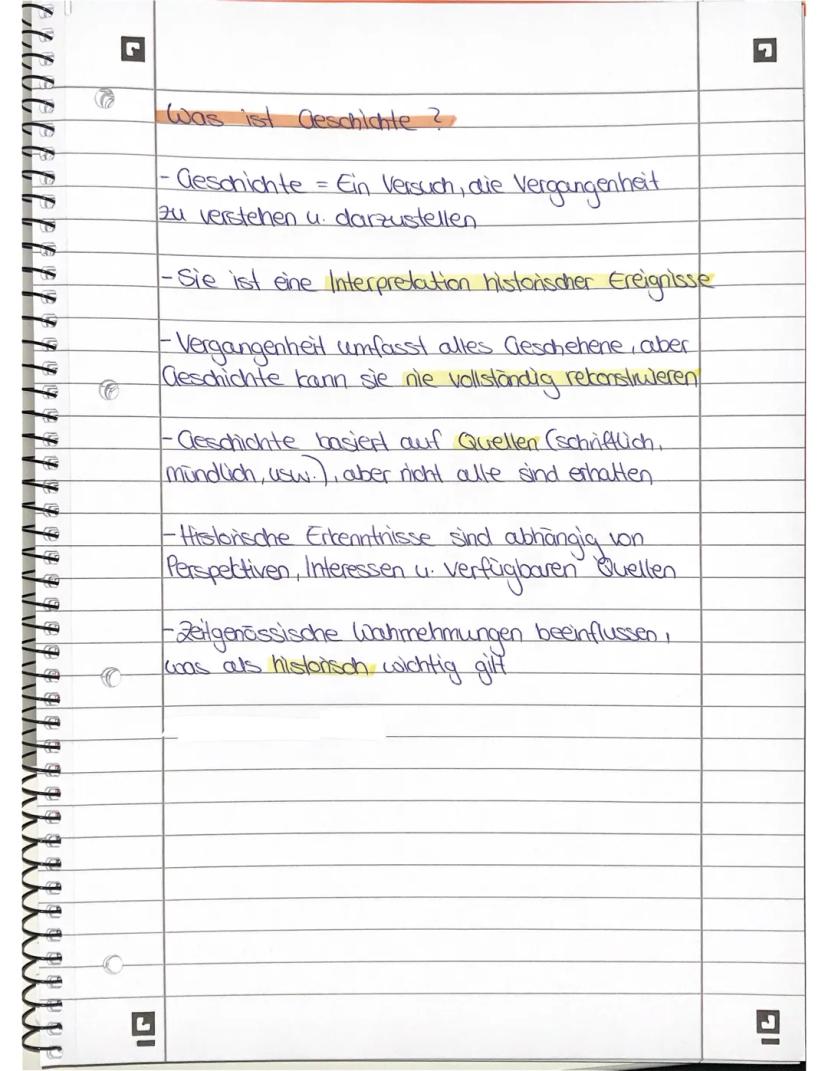 Was ist Geschichte?
- Geschichte = Ein Versuch, die Vergangenheit
zu verstehen u. darzustellen
- Sie ist eine Interpretation historischer Ereignisse
- Vergangenheit umfasst alles Geschehene, aber
Geschichte kann sie nie vollständig rekonstruieren
- Geschichte basiert auf Quellen (schriftlich,
mündlich, usw.), aber nicht alle sind erhalten
- Historische Erkenntnisse sind abhängig von
Perspektiven, Interessen u. verfügbaren Quellen
- Zeitgenössische Wahrnehmungen beeinflussen,
was als historisch wichtig gilt